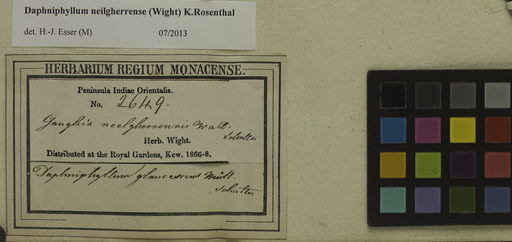 Daphniphyllum neilgherrense (Wight) K.Rosenthal
det. H.-J. Esser (M) 07/2013
HERBARIUM REGIUM MONACENSE.
Peninsula Indiae Orientalis.
No. 2649.
Herb. Wight.
Distributed at the Royal Gardens, Kew. 1866-8.
Daphniphyllum glaucescens